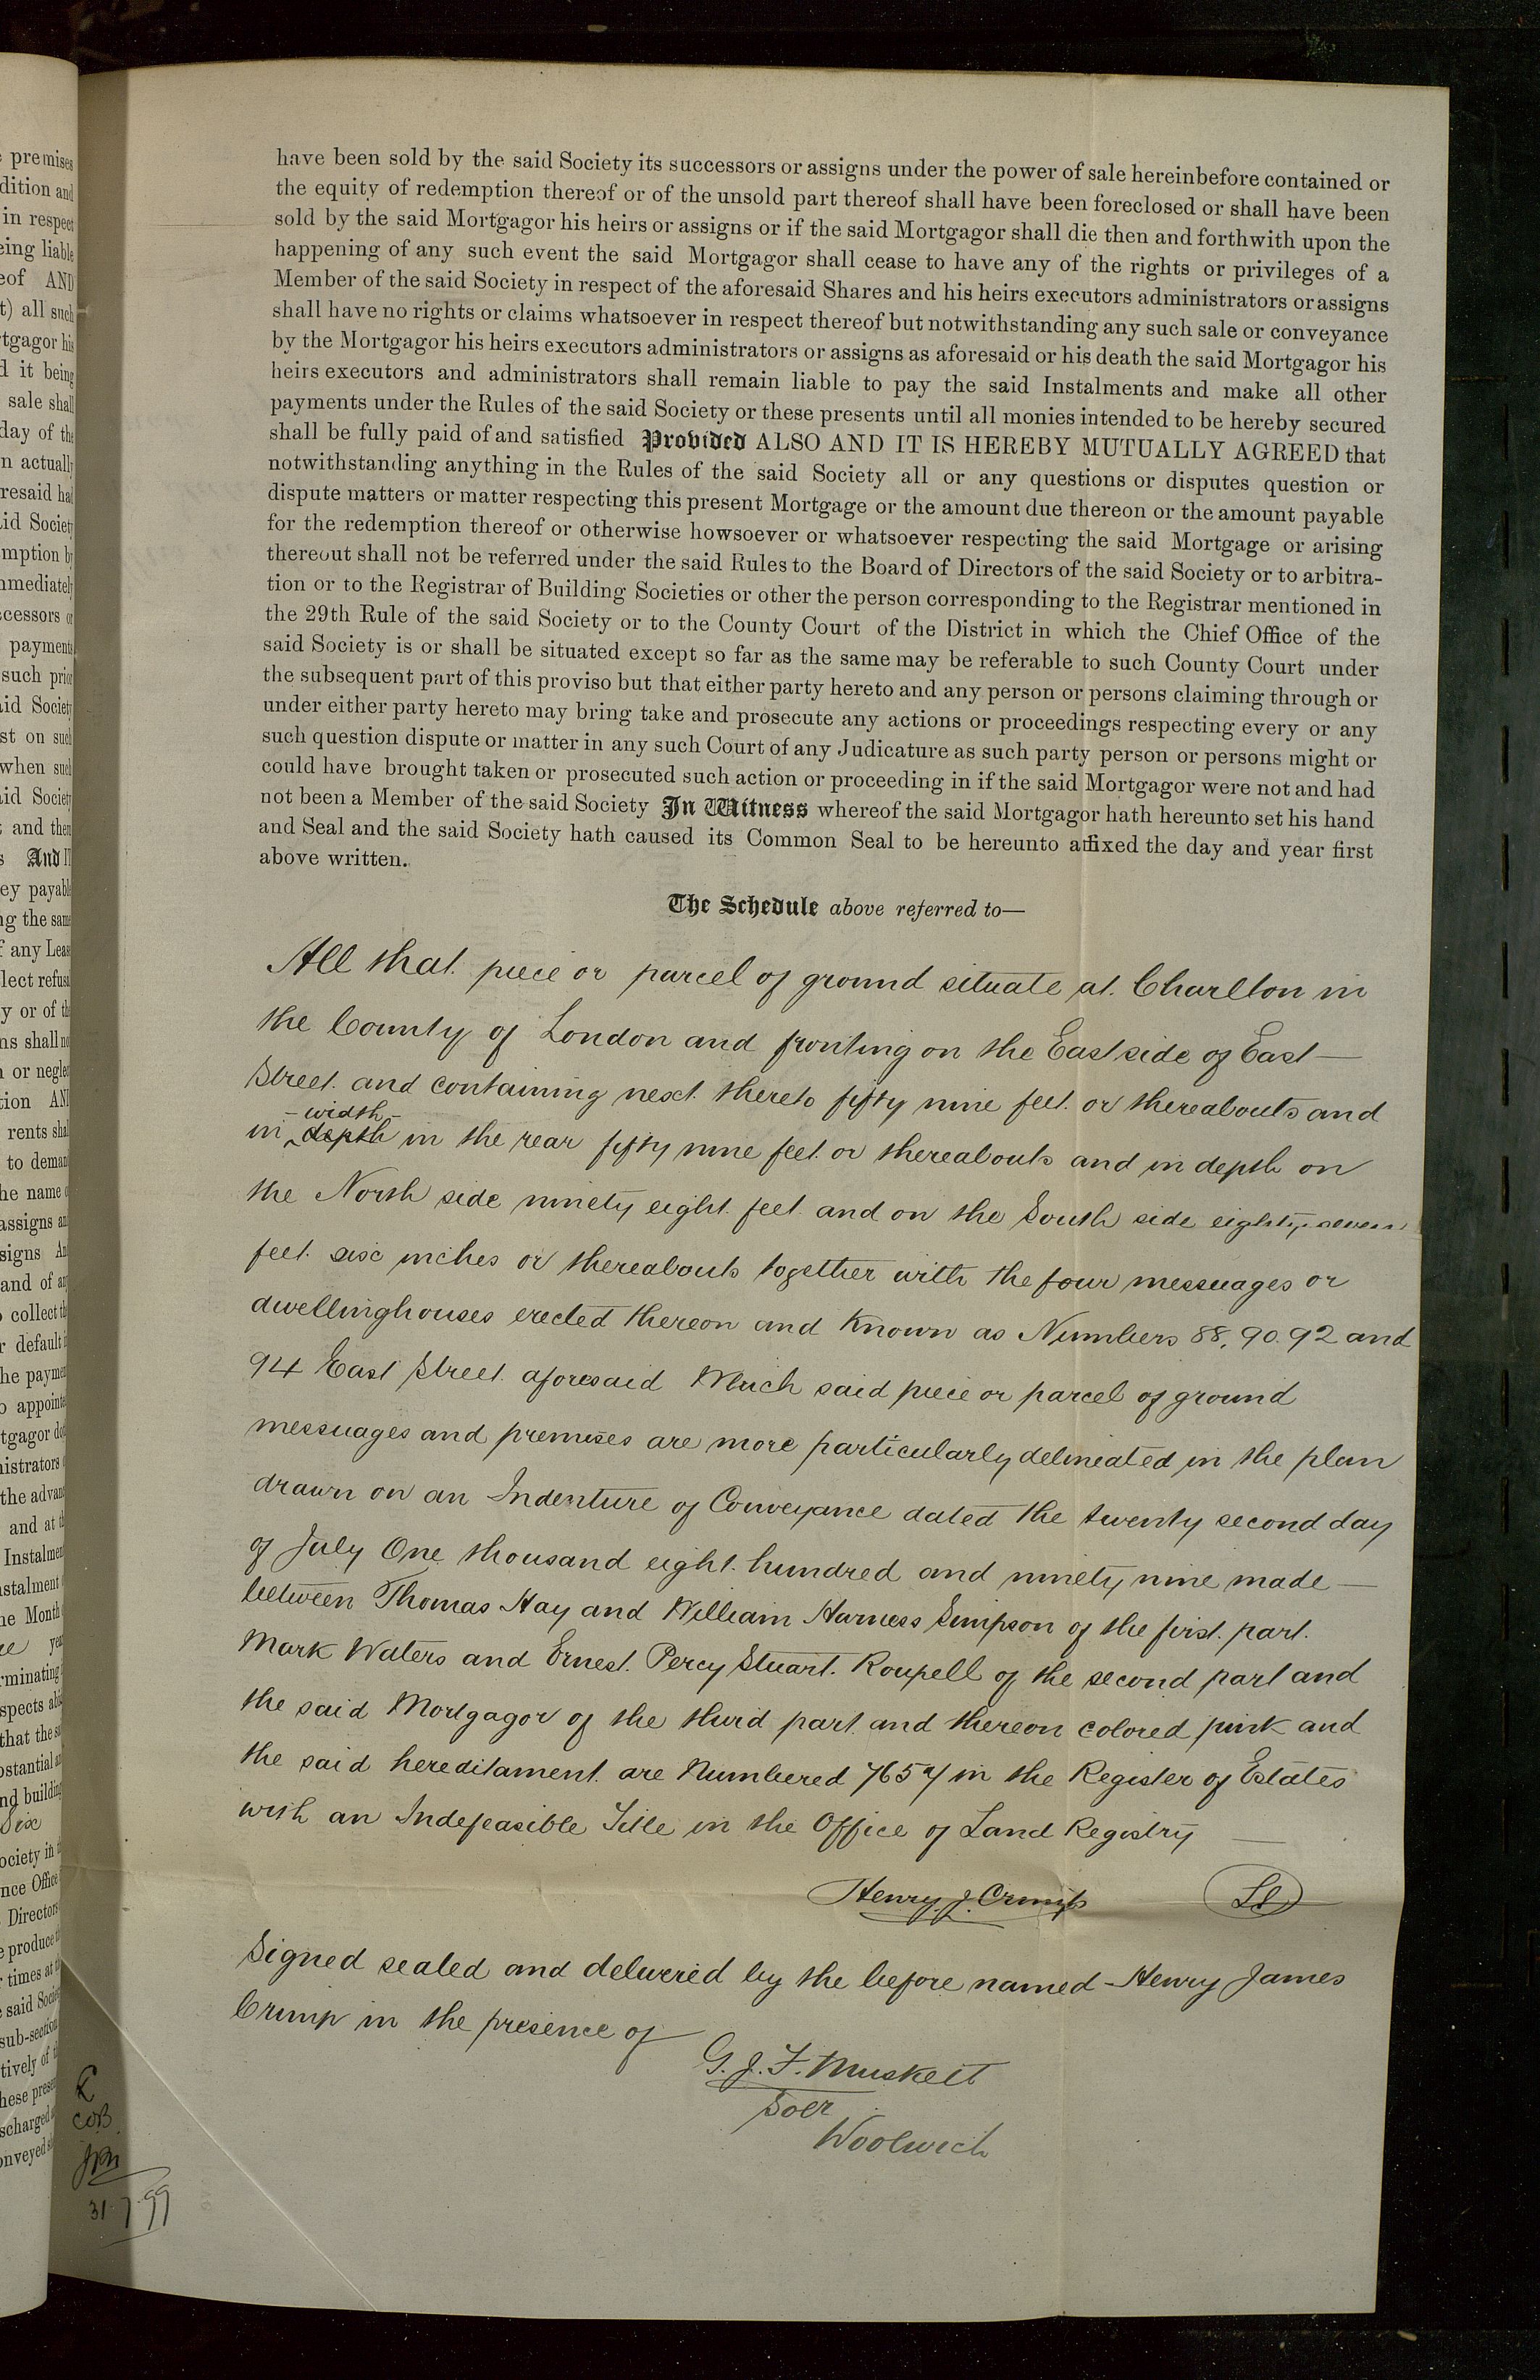 have been sold by the said Society its successors or assigns under the power of sale hereinbefore contained or
the equity of redemption thereof or of the unsold part thereof shall have been foreclosed or shall have been
sold by the said Mortgagor his heirs or assigns or if the said Mortgagor shall die then and forthwith upon the
happening of any such event the said Mortgagor shall cease to have any of the rights or privileges of a
Member of the said Society in respect of the aforesaid Shares and his heirs executors administrators or assigns
shall have no rights or claims whatsoever in respect thereof but notwithstanding any such sale or conveyance
by the Mortgagor his heirs executors administrators or assigns as aforesaid or his death the said Mortgagor his
heirs executors and administrators shall remain liable to pay the said Instalments and make all other
payments under the Rules of the said Society or these presents until all monies intended to be hereby secured
shall be fully paid of and satisfied Provided ALSO AND IT IS HEREBY MUTUALLY AGREED that
notwithstanding anything in the Rules of the said Society all or any questions or disputes question or
dispute matters or matter respecting this present Mortgage or the amount due thereon or the amount payable
for the redemption thereof or otherwise howsoever or whatsoever respecting the said Mortgage or arising
thereout shall not be referred under the said Rules to the Board of Directors of the said Society or to arbitra-
tion or to the Registrar of Building Societies or other the person corresponding to the Registrar mentioned in
the 29th Rule of the said Society or to the County Court of the District in which the Chief Office of the
said Society is or shall be situated except so far as the same may be referable to such County Court under
the subsequent part of this proviso but that either party hereto and any person or persons claiming through or
under either party hereto may bring take and prosecute any actions or proceedings respecting every or any
such question dispute or matter in any such Court of any Judicature as such party person or persons might or
could have brought taken or prosecuted such action or proceeding in if the said Mortgagor were not and had
not been a Member of the said Society In Witness whereof the said Mortgagor hath hereunto set his hand
and Seal and the said Society hath caused its Common Seal to be hereunto affixed the day and year first
above written.
The Schedule above referred to—
All that piece or parcel of ground situate at Charlton in
the County of London and fronting on the East side of East —
Street and containing next thereto fifty nine feet or thereabouts and
- width -
in depth in the rear fifty nine feet or thereabouts and in depth on
the North side ninety eight feet and on the South side eighty seven
feet six inches or thereabouts together with the four messuages or
dwellinghouses erected thereon and known as Numbers 88, 90. 92 and
94 East Street aforesaid Which said piece or parcel of ground
messuages and premises are more particularly delineated in the plan
drawn on an Indenture of Conveyance dated the twenty second day
of July One thousand eight hundred and ninety nine made —
between Thomas Hay and William Harness Simpson of the first part
Mark Waters and Ernest Percy Stuart Roupell of the second part and
the said Mortgagor of the third part and thereon colored pink and
the said hereditament are Numbered 765 in the Register of Estates
with an Indefeasible Title in the Office of Land Registry —
Henry J. Crimp
Signed sealed and delivered by the before named Henry James
Crimp in the presence of
G. J. F. Muskett
Solr
Woolwich
31-7-99